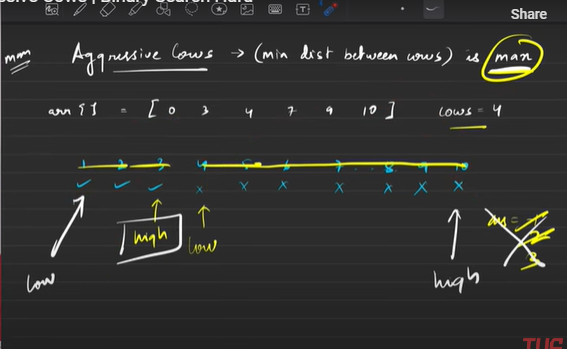 Binary Search Hard
Share
Aggressive Cows → (min dist between cows) is max
arr[] = [ 0 3 4 7 9 10 ] cows = 4
1 2 3 4 5 6 7 8 9 10
✓ ✓ ✓ x x x x x x x
high
low
low
high
ans =
2
3
TUF